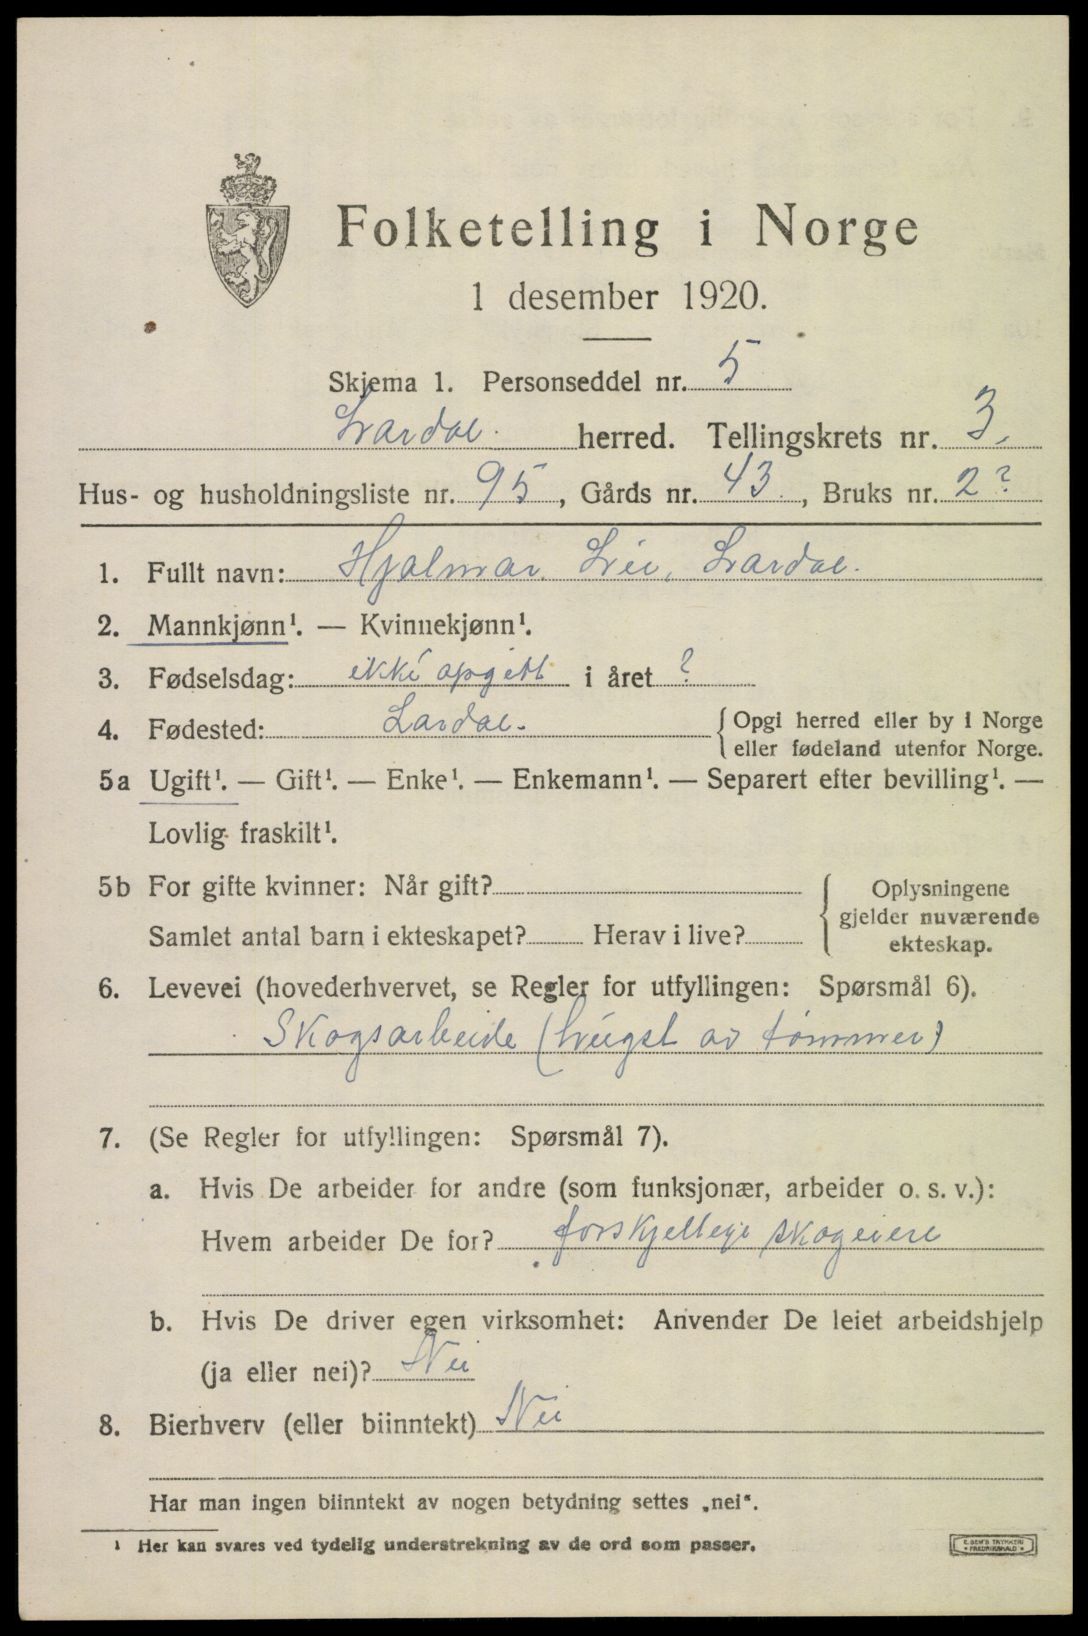 Folketelling i Norge
1 desember 1920.
Skjema 1. Personseddel nr. 5
Lardal. herred. Tellingskrets nr. 3.
Hus- og husholdningsliste nr. 95, Gårds nr. 43., Bruks nr. 2?
1. Fullt navn: Hjalmar Lie, Lardal.
2. Mannkjønn¹. — Kvinnekjønn¹.
3. Fødselsdag: ikke opgitt i året ?
4. Fødested: Lardal. Opgi herred eller by i Norge
eller fødeland utenfor Norge.
5a Ugift¹. — Gift¹. — Enke¹. — Enkemann¹. — Separert efter bevilling¹. —
Lovlig fraskilt¹.
5b For gifte kvinner: Når gift? Oplysningene
gjelder nuværende
Samlet antal barn i ekteskapet? Herav i live? ekteskap.
6. Levevei (hovederhvervet, se Regler for utfyllingen: Spørsmål 6).
Skogsarbeide (hugst av tømmer)
7. (Se Regler for utfyllingen: Spørsmål 7).
a. Hvis De arbeider for andre (som funksjonær, arbeider o. s. v.):
Hvem arbeider De for? forskjellige skogeiere
b. Hvis De driver egen virksomhet: Anvender De leiet arbeidshjelp
(ja eller nei)? Nei
8. Bierhverv (eller biinntekt) Nei
Har man ingen biinntekt av nogen betydning settes „nei“.
¹ Her kan svares ved tydelig understrekning av de ord som passer.
E. SEM'S TRYKKERI
FREDRIKSHALD